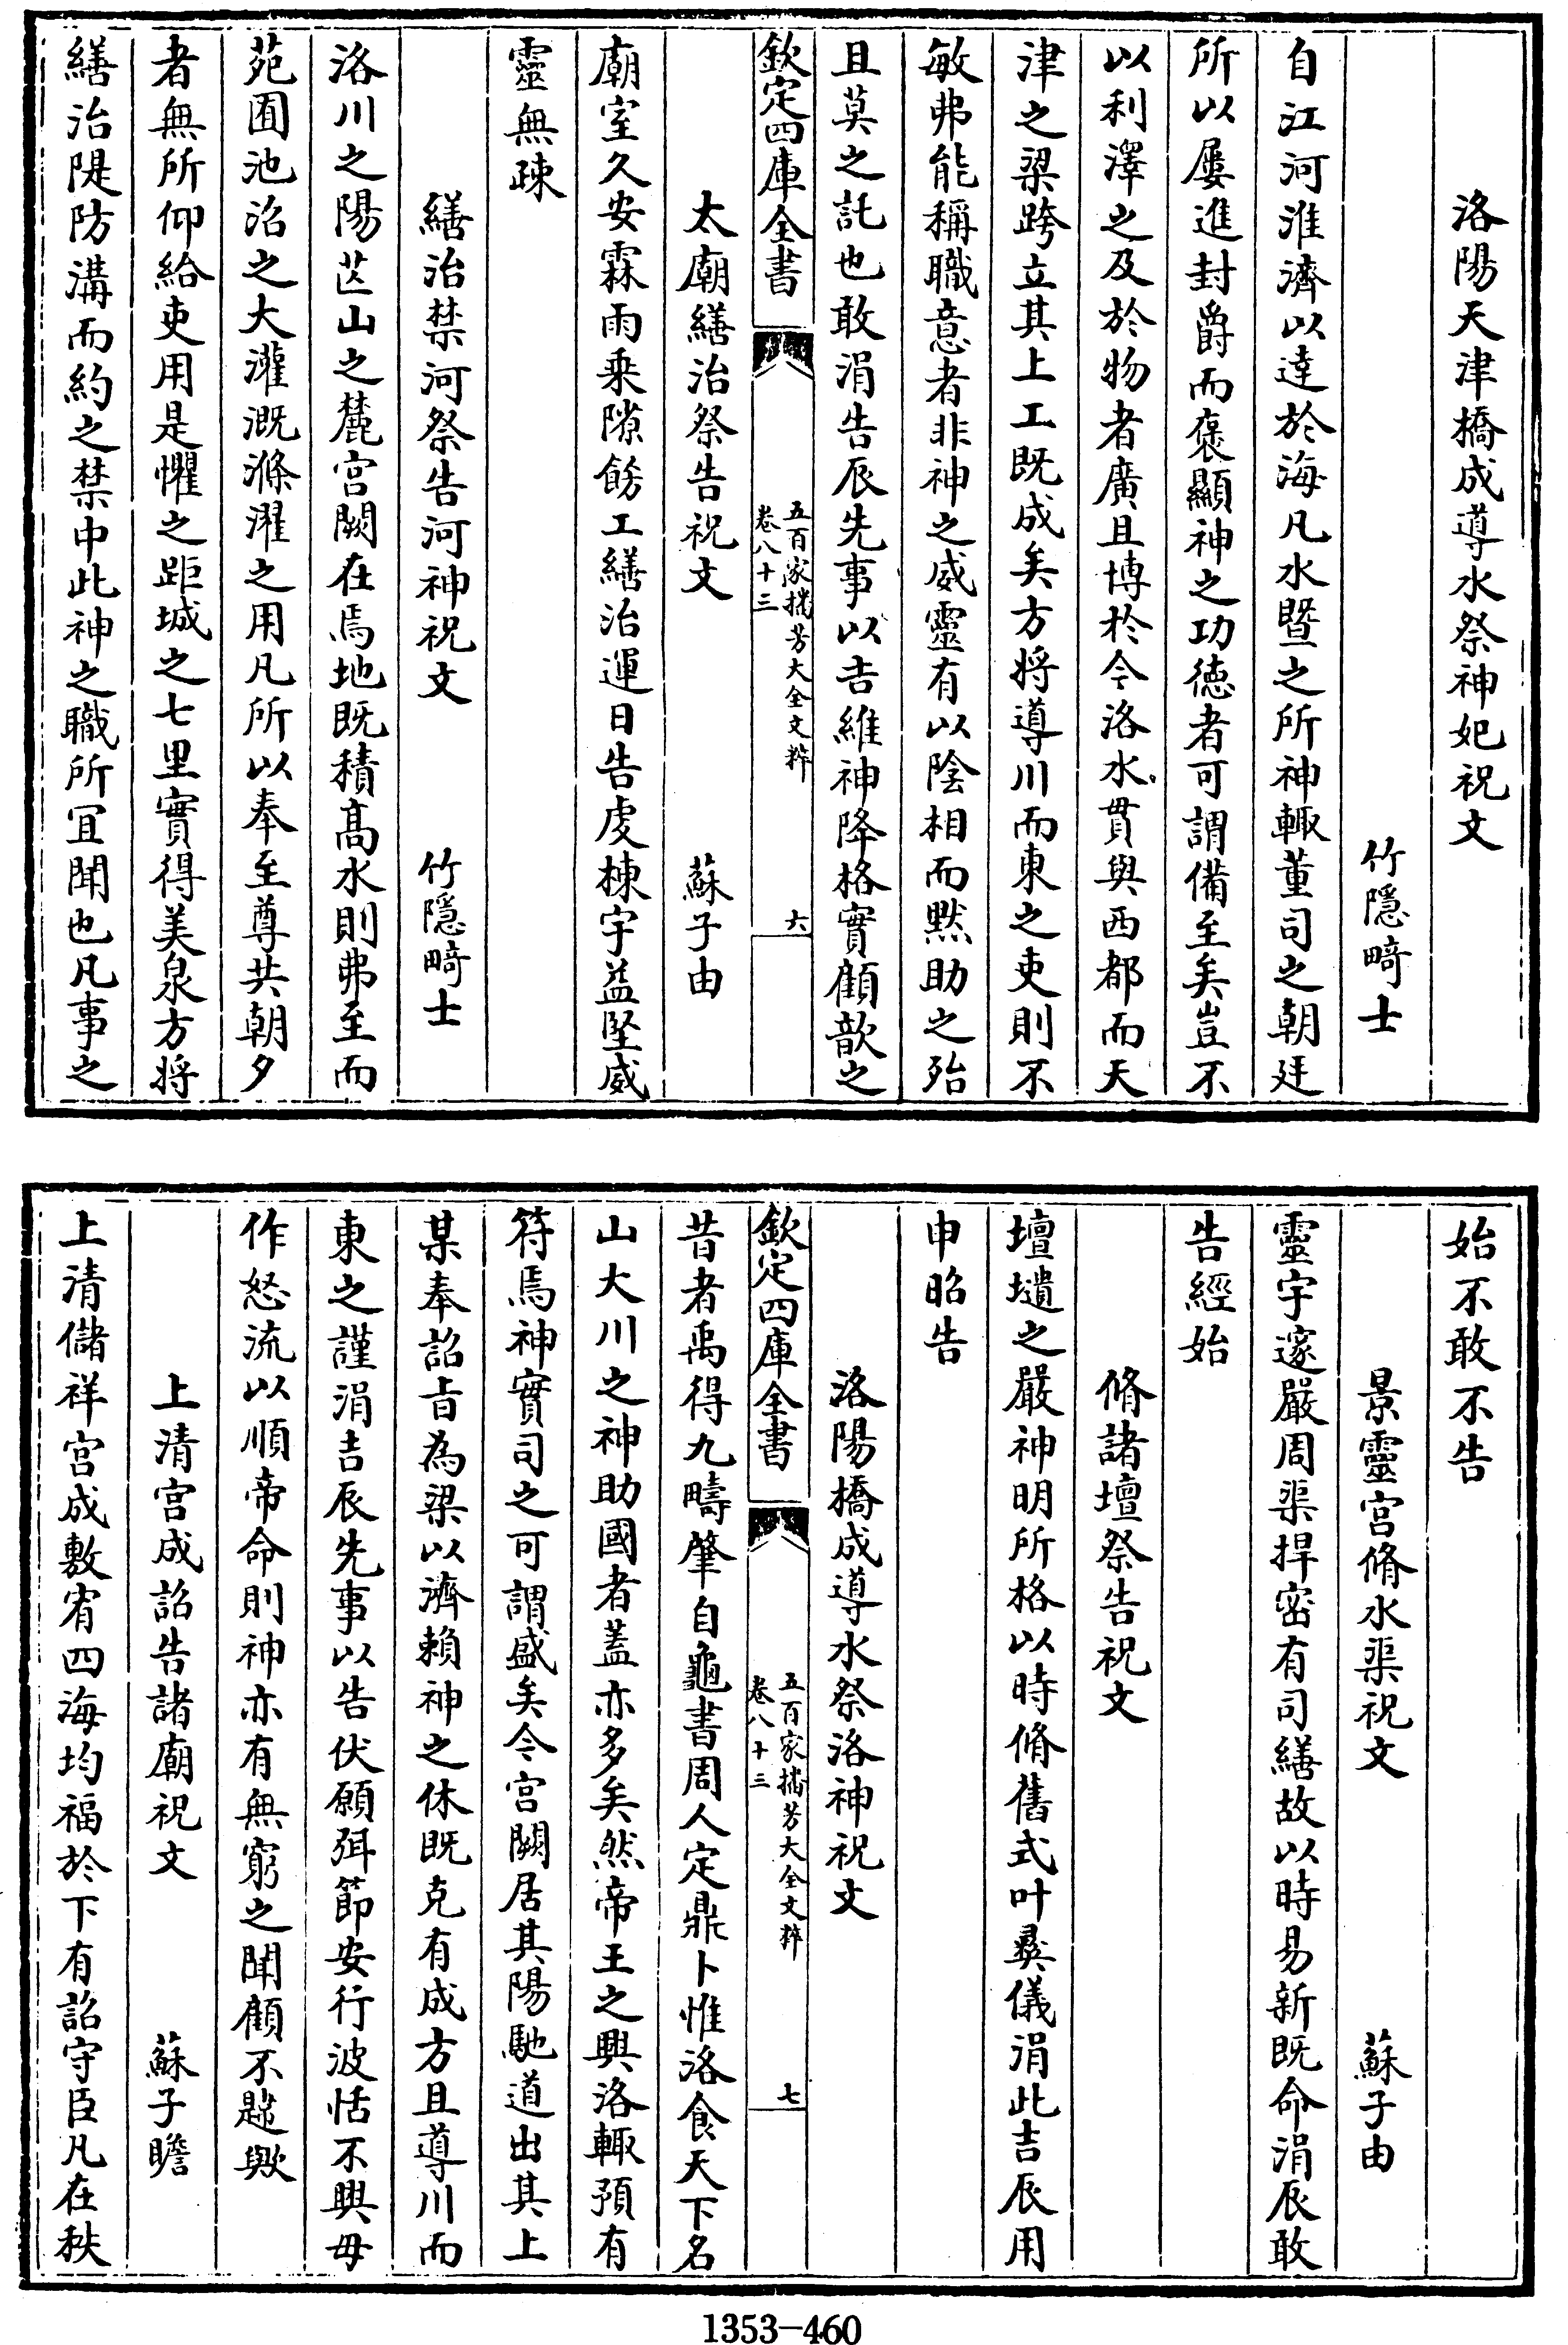 洛陽天津橋成導水祭神妃祝文
竹隠畸士
自江河淮濟以達於海凡水暨之所神輙董司之朝廷
所以屢進封爵而褒顯神之功徳者可謂備至矣豈不
以利澤之及於物者廣且博於今洛水貫與西都而天
津之梁跨立其上工既成矣方将導川而東之吏則不
敏弗能稱職意者非神之威靈有以陰相而黙助之殆
且莫之託也敢涓告辰先事以吿維神降格實顧歆之
欽定四庫全書
五百家播芳大全文粹
卷八十三
六
太廟繕治祭告祝文
蘇子由
廟室久安霖雨乗隙飭工繕治運日告䖍棟宇益堅威
靈無疎
繕治禁河祭告河神祝文
竹隠畸士
洛川之陽芒山之麓宫闕在焉地既積髙水則弗至而
苑囿池沼之大灌溉滌濯之用凡所以奉至尊共朝夕
者無所仰給吏用是懼之距城之七里實得美泉方将
繕治隄防溝而約之禁中此神之職所宜聞也凡事之
始不敢不告
景靈宫脩水渠祝文
蘇子由
靈宇邃嚴周渠捍密有司繕故以時易新既命涓辰敢
告經始
脩諸壇祭告祝文
壇壝之嚴神明所格以時脩舊式叶彛儀涓此吉辰用
申昭告
洛陽橋成導水祭洛神祝文
欽定四庫全書
五百家播芳大全文粹
卷八十三
七
昔者禹得九疇肇自龜書周人定鼎卜惟洛食天下名
山大川之神助國者蓋亦多矣然帝王之興洛輙預有
符焉神實司之可謂盛矣今宫闕居其陽馳道出其上
某奉詔㫖為梁以濟賴神之休既克有成方且導川而
東之謹涓吉辰先事以告伏願弭節安行波恬不興毋
作怒流以順帝命則神亦有無窮之聞顧不韙歟
上清宫成詔告諸廟祝文
蘇子瞻
上清儲祥宫成敷宥四海均福於下有詔守臣凡在秩
1353—460